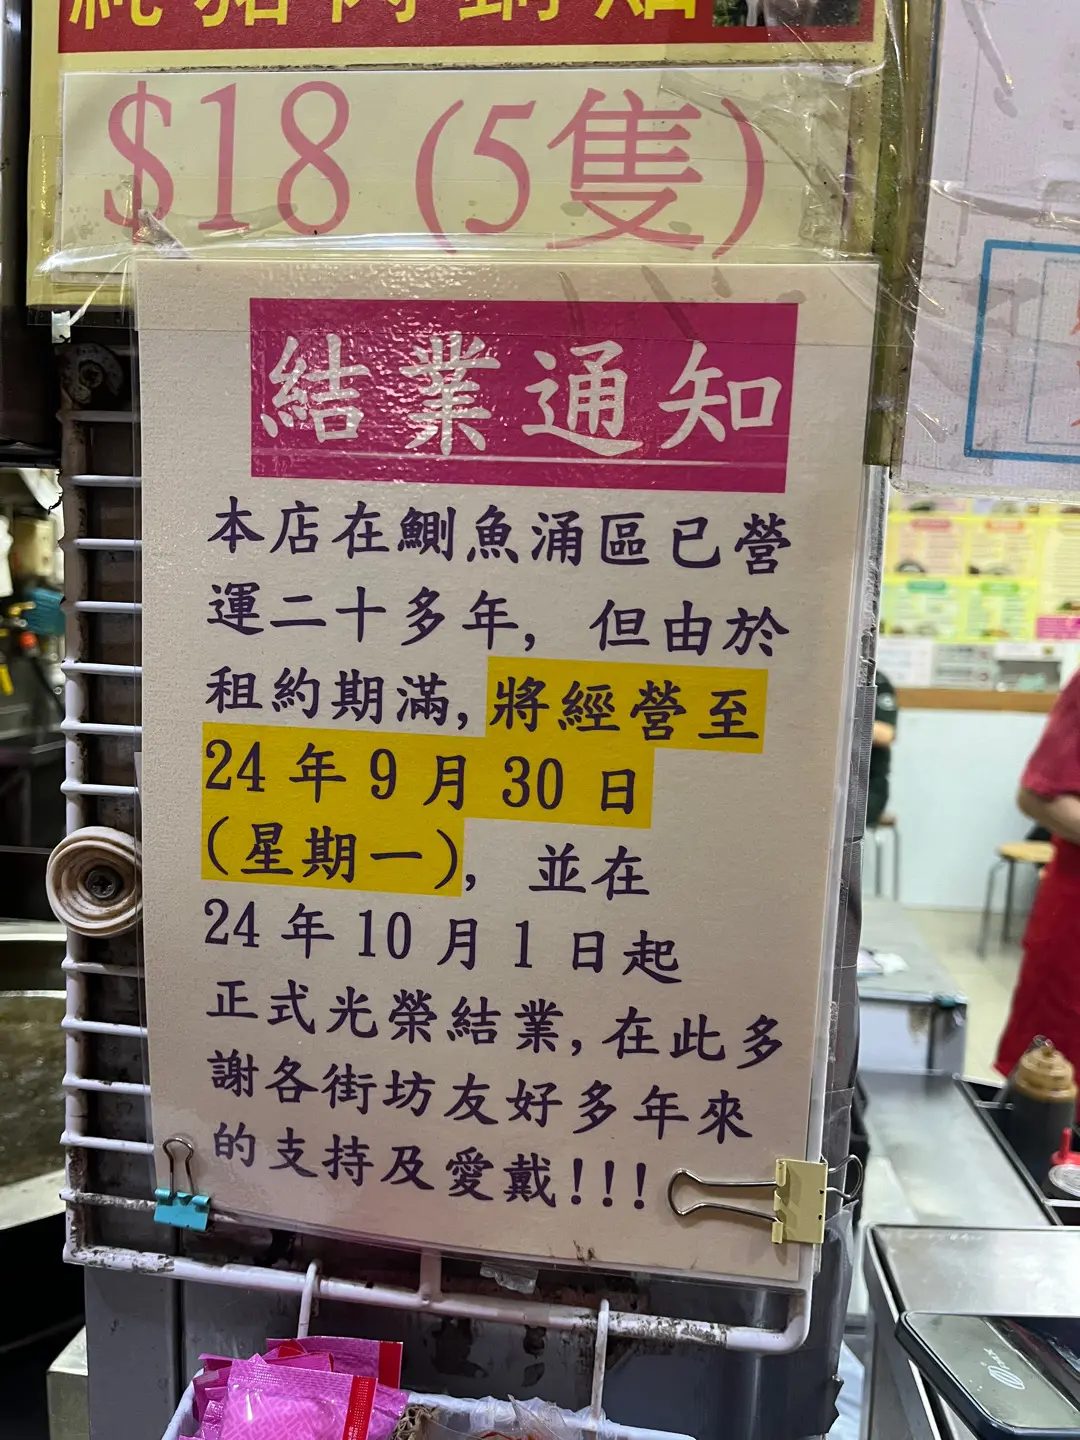 純豬肉鍋貼
$18 (5隻)
結業通知
本店在鰂魚涌區已營
運二十多年, 但由於
租約期滿, 將經營至
24 年 9 月 30 日
(星期一), 並在
24 年 10 月 1 日起
正式光榮結業, 在此多
謝各街坊友好多年來
的支持及愛戴!!!